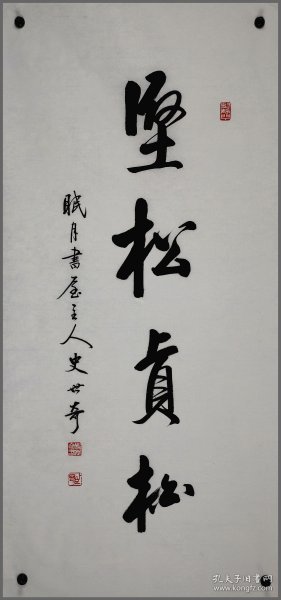 堅松貞松
眠月書屋主人史世奇
孔夫子旧书网
www.kongfz.com